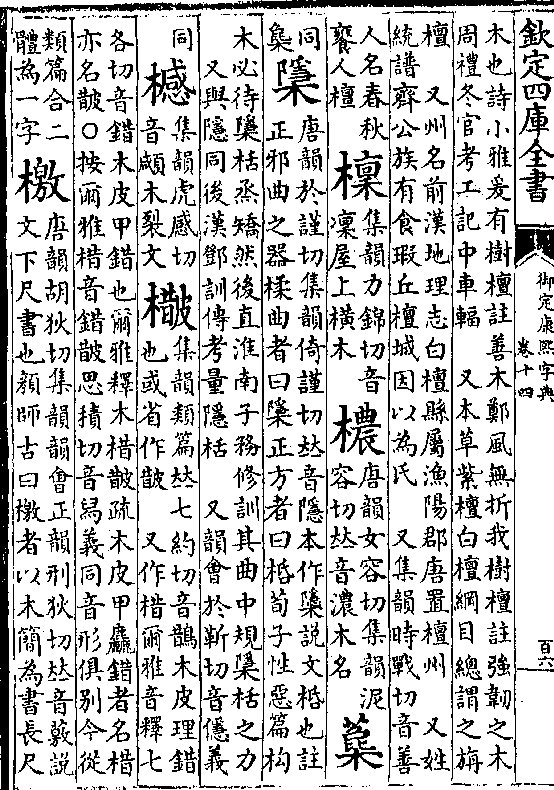 欽定四庫全書
御定康熙字典
卷十四
百六
木也詩小雅爰有樹檀註善木鄭風無折我樹檀註強韌之木
周禮冬官考工記中車輻 又本草紫檀白檀綱目總謂之旃
檀 又州名前漢地理志白檀縣屬漁陽郡唐置檀州 又姓
統譜齊公族有食瑕丘檀城因以為氏 又集韻時戰切音善
人名春秋
饔人檀
檁
集韻力錦切音
凜屋上橫木
檂
唐韻女容切集韻泥
容切𠀤音濃木名
䕯
同
梟
檃
唐韻於謹切集韻倚謹切𠀤音隱本作㯶說文桰也註
正邪曲之器揉曲者曰㯶正方者曰桰荀子性惡篇枸
木必待檃栝烝矯然後直淮南子務修訓其曲中規檃栝之力
又與隱同後漢鄧訓傳考量隱栝 又韻會於靳切音億義
同
㰖
集韻虎感切
音顑木裂文
㰆
集韻類篇𠀤七約切音鵲木皮理錯
也或省作皵 又作棤爾雅音釋七
各切音錯木皮甲錯也爾雅釋木棤皵疏木皮甲麤錯者名棤
亦名皵○按爾雅棤音錯皵思積切音舄義同音形俱別今從
類篇合二
體為一字
檄
唐韻胡狄切集韻韻會正韻刑狄切𠀤音薂說
文下尺書也顏師古曰檄者以木簡為書長尺